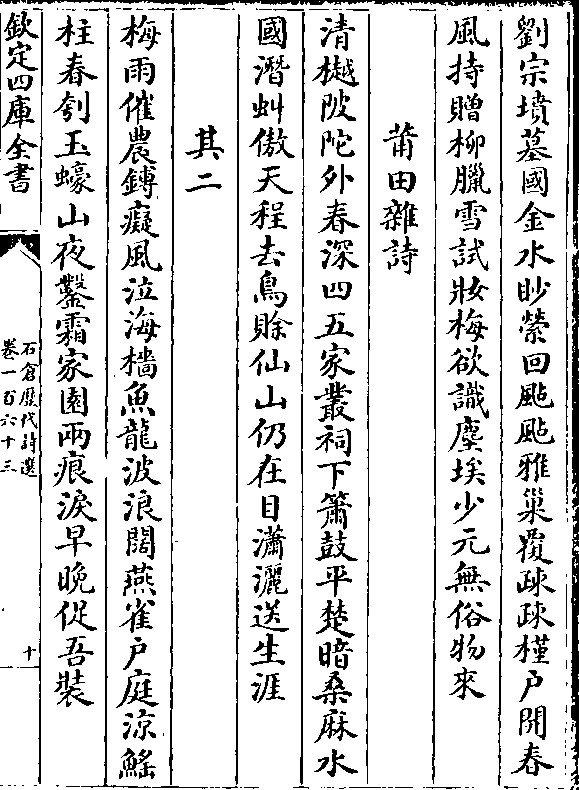 劉宗墳墓國金水眇縈回颭颭雅巢覆疎疎槿户開春
風持贈柳臘雪試妝梅欲識塵埃少元無俗物來
莆田雜詩
清樾陂陀外春深四五家叢祠下簫鼓平楚暗桑麻水
國潛虯傲天程去鳥賖仙山仍在目瀟灑送生涯
其二
梅雨催農鎛癡風泣海檣魚龍波浪闊燕雀户庭凉鰩
柱春刳玉蠔山夜鑿霜家園兩痕淚早晚促吾裝
欽定四庫全書
石倉歷代詩選
卷一百六十三
十